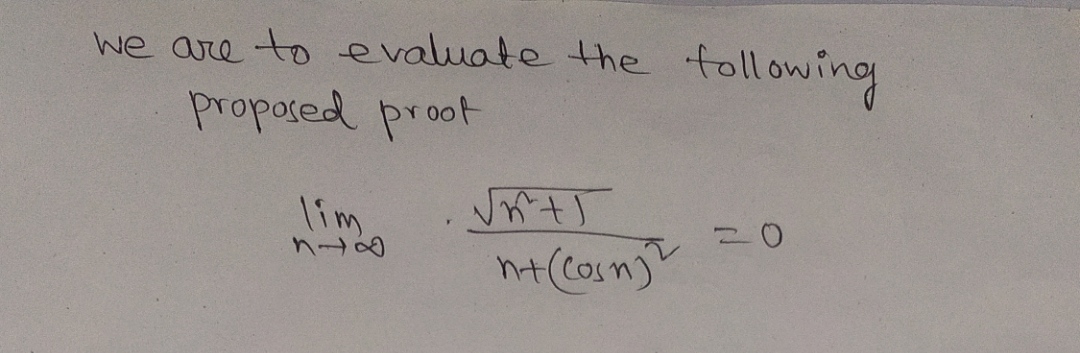 we are to evaluate the following
proposed proof
lim n→∞ √(n²+1) / (n+(cosn)²) = 0